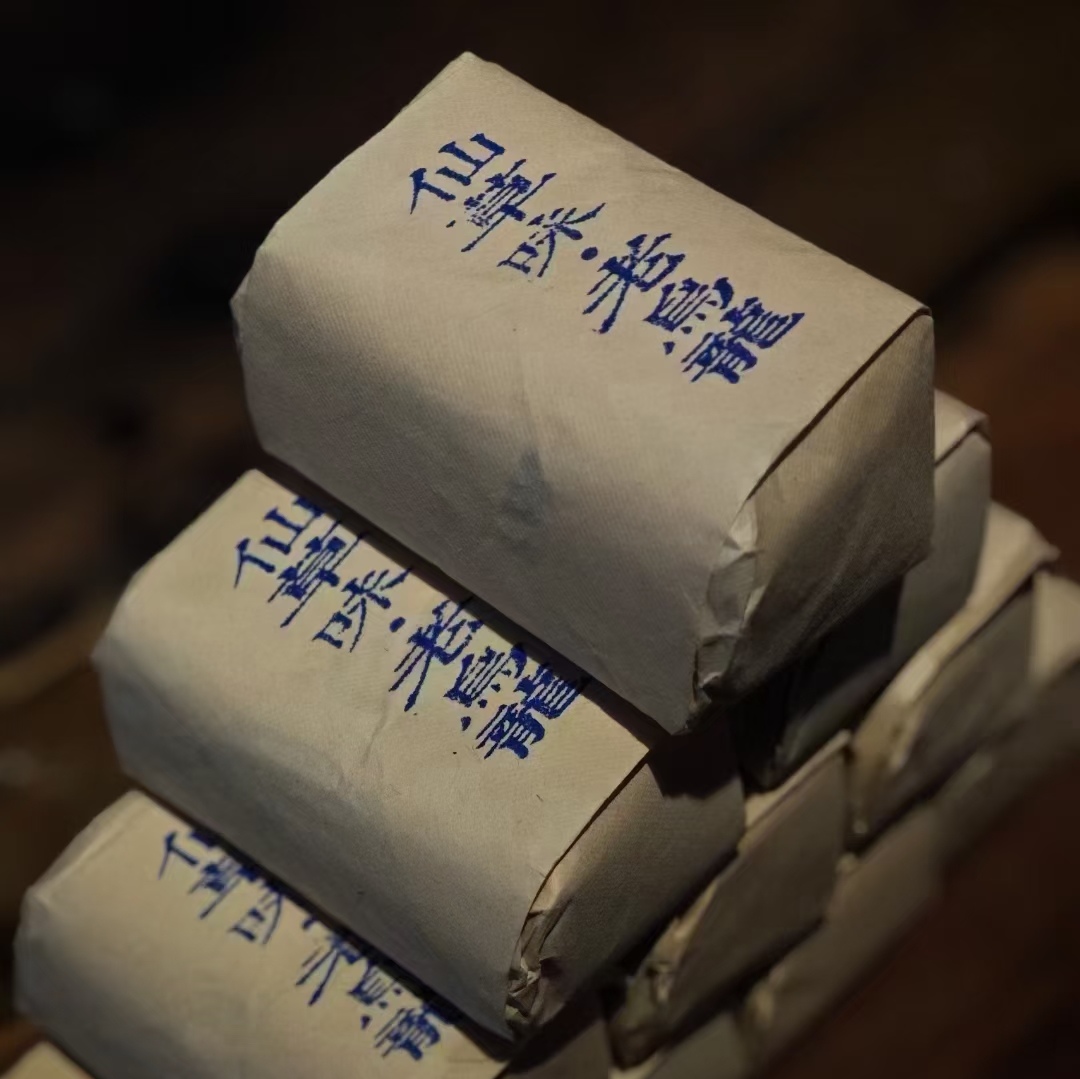 仙草味·老烏龍
仙草味·老烏龍
仙草味·老烏龍